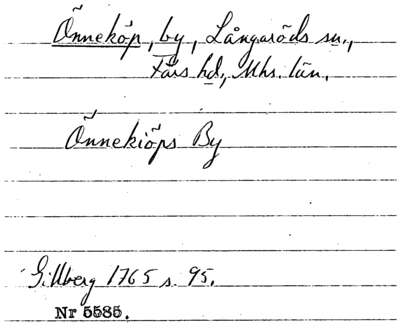 Önneköp, by, Långaröds sn.,
Färs hd, Mhs. län.
Önnekiöps By
Gillberg 1765 s. 95.
Nr 5585.